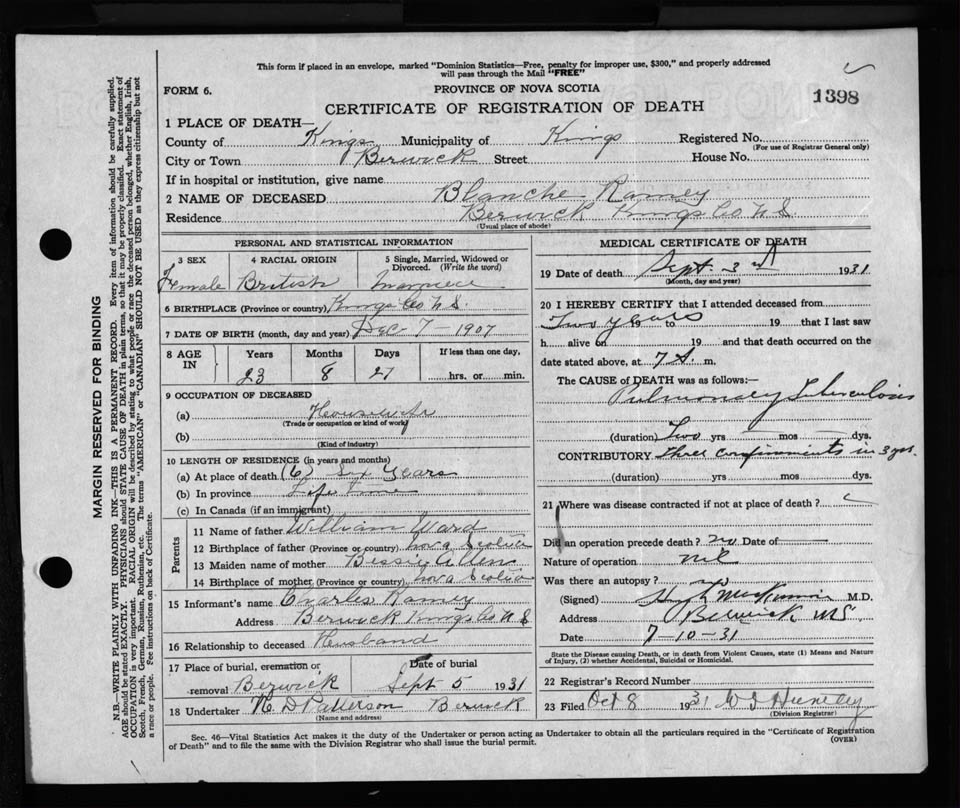 This form if placed in an envelope, marked "Dominion Statistics—Free, penalty for improper use, $300," and properly addressed
will pass through the Mail "FREE"
FORM 6.
PROVINCE OF NOVA SCOTIA
1398
CERTIFICATE OF REGISTRATION OF DEATH
1 PLACE OF DEATH—
County of Kings Municipality of Kings Registered No.
(For use of Registrar General only)
City or Town Berwick Street House No.
If in hospital or institution, give name
2 NAME OF DECEASED Blanche Ramey
Residence Berwick Kings Co N S
(Usual place of abode)
PERSONAL AND STATISTICAL INFORMATION
3 SEX 4 RACIAL ORIGIN 5 Single, Married, Widowed or
Divorced. (Write the word)
Female British Married
6 BIRTHPLACE (Province or country) Kings Co N S.
7 DATE OF BIRTH (month, day and year) Dec 7 - 1907
8 AGE IN Years Months Days If less than one day,
23 8 27 hrs. or min.
9 OCCUPATION OF DECEASED
(a) Housewife
(Trade or occupation or kind of work)
(b)
(Kind of industry)
10 LENGTH OF RESIDENCE (in years and months)
(a) At place of death (6) Six Years
(b) In province Life Time
(c) In Canada (if an immigrant)
Parents
11 Name of father William Ward
12 Birthplace of father (Province or country) Nova Scotia
13 Maiden name of mother Bessie Allen
14 Birthplace of mother (Province or country) Nova Scotia
15 Informant's name Charles Ramey
Address Berwick Kings Co N S
16 Relationship to deceased Husband
17 Place of burial, cremation or Date of burial
removal Berwick Sept 5 1931
18 Undertaker D Patterson Berwick
(Name and address)
MEDICAL CERTIFICATE OF DEATH
19 Date of death Sept. 3rd 1931
(Month, day and year)
20 I HEREBY CERTIFY that I attended deceased from
Two years 19 to 19 that I last saw
h alive on 19 and that death occurred on the
date stated above, at 7 A. m.
The CAUSE of DEATH was as follows:—
Pulmonary Tuberculosis
(duration) Two yrs — mos — dys.
CONTRIBUTORY Three confinements in 3 yrs
(duration) yrs mos dys.
21 Where was disease contracted if not at place of death?
Did an operation precede death? no Date of —
Nature of operation nil
Was there an autopsy? no
(Signed) M.D.
Address Berwick NS
Date 7-10-31
State the Disease causing Death, or in death from Violent Causes, state (1) Means and Nature
of Injury, (2) whether Accidental, Suicidal or Homicidal.
22 Registrar's Record Number
23 Filed Oct 8 1931
(Division Registrar)
Sec. 46—Vital Statistics Act makes it the duty of the Undertaker or person acting as Undertaker to obtain all the particulars required in the "Certificate of Registration
of Death" and to file the same with the Division Registrar who shall issue the burial permit.
(OVER)
MARGIN RESERVED FOR BINDING
N.B.—WRITE PLAINLY WITH UNFADING INK—THIS IS A PERMANENT RECORD. Every item of information should be carefully supplied.
AGE should be stated EXACTLY. PHYSICIANS should STATE CAUSE OF DEATH in plain terms, so that it may be properly classified. Exact statement of
OCCUPATION is very important. RACIAL ORIGIN will be described by stating to what people or race the deceased person belonged, whether English, Irish,
Scotch, French, German, Russian, Ruthenian, etc. The terms "AMERICAN" or "CANADIAN" SHOULD NOT BE USED as they express citizenship but not
a race or people. See instructions on back of Certificate.